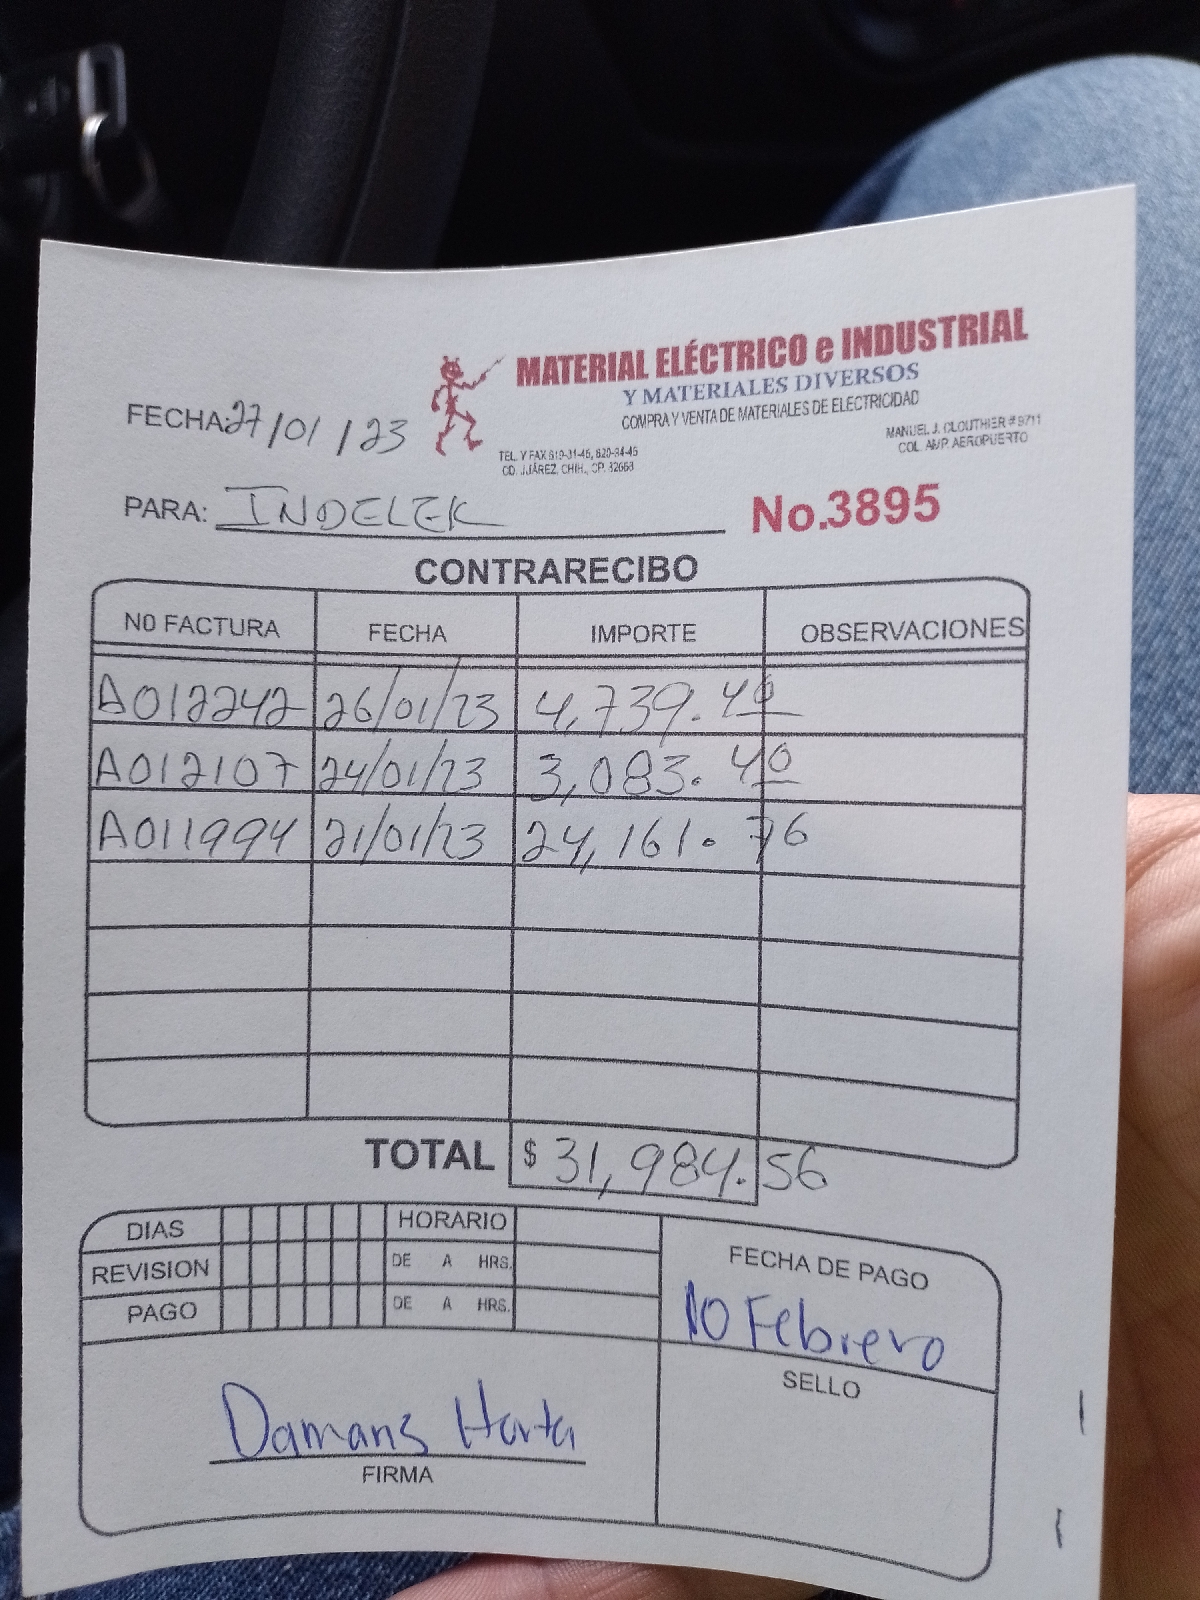 MATERIAL ELÉCTRICO e INDUSTRIAL
Y MATERIALES DIVERSOS
COMPRA Y VENTA DE MATERIALES DE ELECTRICIDAD
MANUEL J. CLOUTHIER # 9711
COL. AMP. AEROPUERTO
TEL. Y FAX 619-31-45, 620-94-45
CD. JUÁREZ, CHIH., CP. 32663
FECHA: 27/01/23
PARA: INDELEK No.3895
CONTRARECIBO
NO FACTURA FECHA IMPORTE OBSERVACIONES
A012242 26/01/23 4,739.40
A012107 24/01/23 3,083.40
A011994 21/01/23 24,161.76
TOTAL $ 31,984.56
DIAS HORARIO
REVISION DE A HRS.
PAGO DE A HRS.
FECHA DE PAGO
10 Febrero
SELLO
Damaris Horta
FIRMA